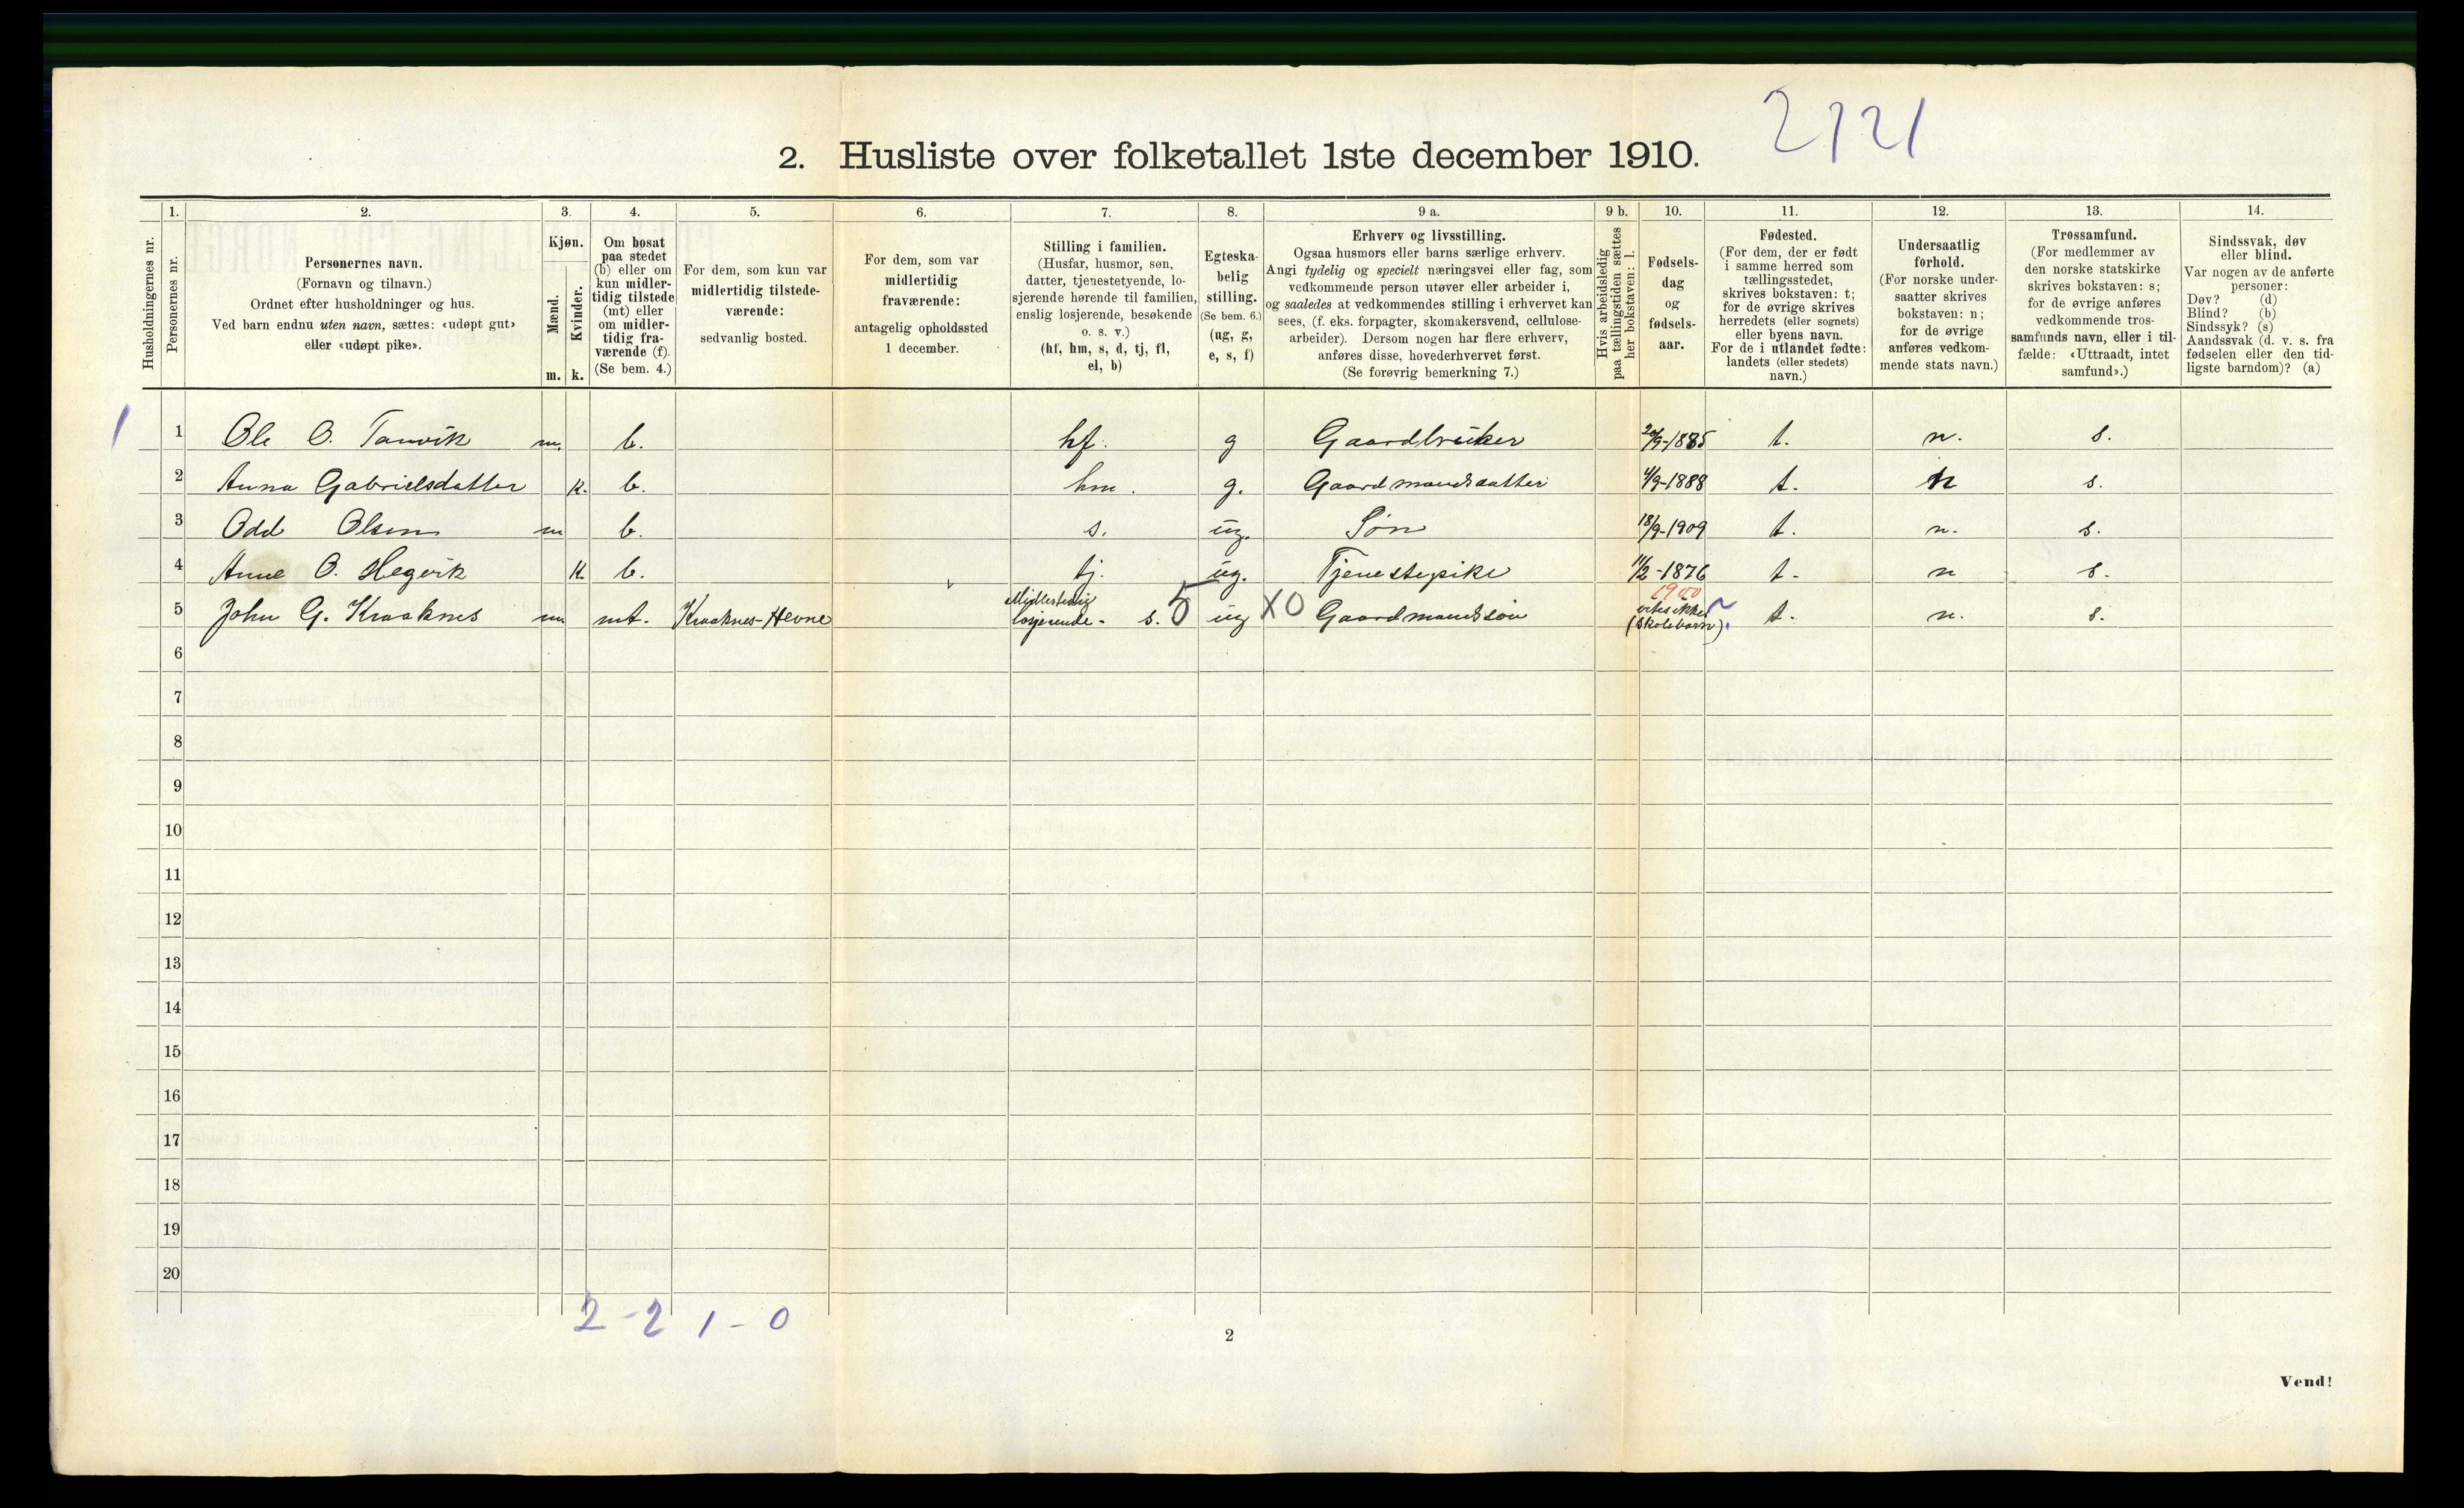 2121
2. Husliste over folketallet 1ste december 1910.
1. 2. 3. 4. 5. 6. 7. 8. 9 a. 9 b. 10. 11. 12. 13. 14.
Husholdningernes nr.
Personernes nr.
Personernes navn.
(Fornavn og tilnavn.)
Ordnet efter husholdninger og hus.
Ved barn endnu uten navn, sættes: «udøpt gut»
eller «udøpt pike».
Kjøn.
Mænd.
Kvinder.
m. k.
Om bosat
paa stedet
(b) eller om
kun midler-
tidig tilstede
(mt) eller
om midler-
tidig fra-
værende (f).
(Se bem. 4.)
For dem, som kun var
midlertidig tilstede-
værende:
sedvanlig bosted.
For dem, som var
midlertidig
fraværende:
antagelig opholdssted
1 december.
Stilling i familien.
(Husfar, husmor, søn,
datter, tjenestetyende, lo-
sjerende hørende til familien,
enslig losjerende, besøkende
o. s. v.)
(hf, hm, s, d, tj, fl,
el, b)
Egteska-
belig
stilling.
(Se bem. 6.)
(ug, g,
e, s, f)
Erhverv og livsstilling.
Ogsaa husmors eller barns særlige erhverv.
Angi tydelig og specielt næringsvei eller fag, som
vedkommende person utøver eller arbeider i,
og saaledes at vedkommendes stilling i erhvervet kan
sees, (f. eks. forpagter, skomakersvend, cellulose-
arbeider). Dersom nogen har flere erhverv,
anføres disse, hovederhvervet først.
(Se forøvrig bemerkning 7.)
Hvis arbeidsledig
paa tællingstiden sættes
her bokstaven: l.
Fødsels-
dag
og
fødsels-
aar.
Fødested.
(For dem, der er født
i samme herred som
tællingsstedet,
skrives bokstaven: t;
for de øvrige skrives
herredets (eller sognets)
eller byens navn.
For de i utlandet fødte:
landets (eller stedets)
navn.)
Undersaatlig
forhold.
(For norske under-
saatter skrives
bokstaven: n;
for de øvrige
anføres vedkom-
mende stats navn.)
Trossamfund.
(For medlemmer av
den norske statskirke
skrives bokstaven: s;
for de øvrige anføres
vedkommende tros-
samfunds navn, eller i til-
fælde: «Uttraadt, intet
samfund».)
Sindssvak, døv
eller blind.
Var nogen av de anførte
personer:
Døv? (d)
Blind? (b)
Sindssyk? (s)
Aandssvak (d. v. s. fra
fødselen eller den tid-
ligste barndom)? (a)
1 1 Ole O. Tanvik m. b. hf. g Gaardbruker 20/9-1885 t. n. s.
2 Anna Gabrielsdatter k. b. hm. g. Gaardmandsdatter 4/9-1888 t. n s.
3 Odd Olsen m b. s. ug. Søn 18/9-1909 t. n. s.
4 Anne O. Hegvik k. b. tj. ug. Tjenestepike 11/2-1876 t. n s.
5 John G. Kraaknes m mt. Kraaknes-Hevne Midlertidig losjerende - s. 5 ug XO Gaardmandssøn 1900 vites ikke (skolebarn). t. n. s.
6
7
8
9
10
11
12
13
14
15
16
17
18
19
20
2 - 2 1 - 0
2
Vend!